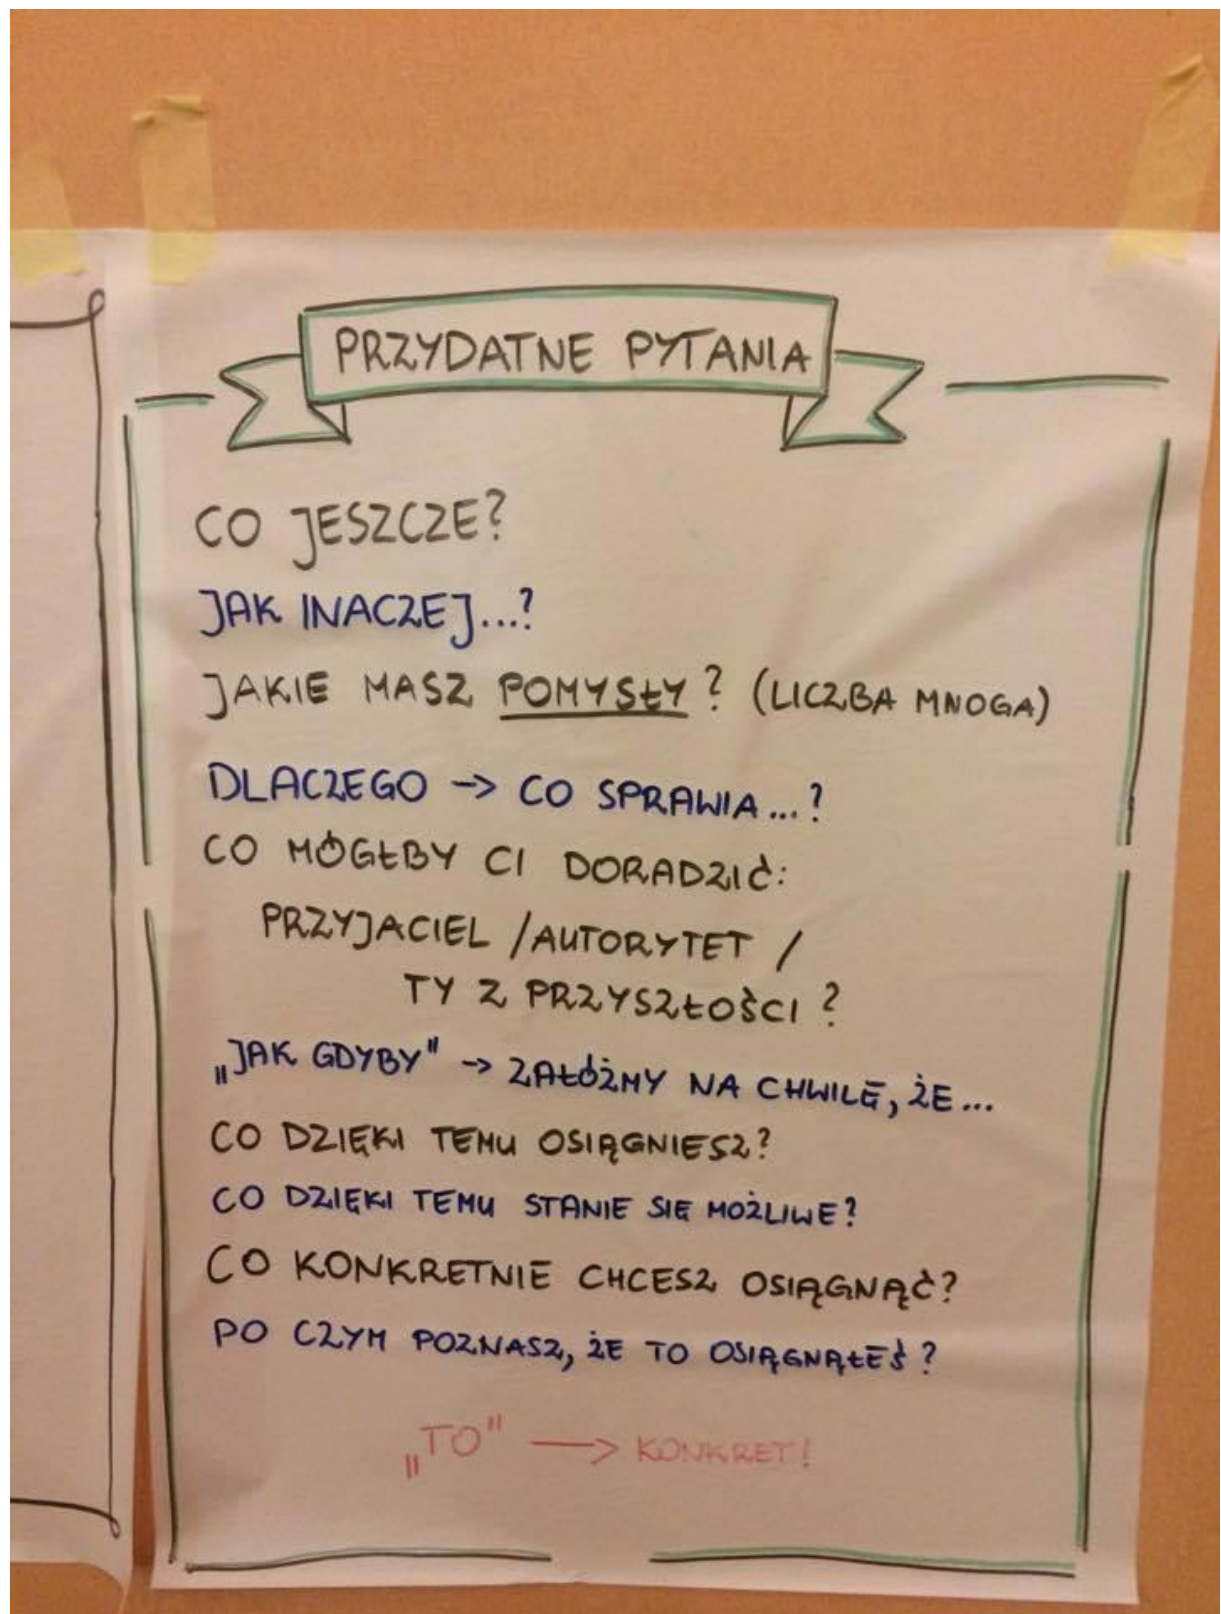 PRZYDATNE PYTANIA
CO JESZCZE?
JAK INACZEJ...?
JAKIE MASZ POMYSŁY? (LICZBA MNOGA)
DLACZEGO -> CO SPRAWIA...?
CO MÓGŁBY CI DORADZIĆ:
PRZYJACIEL / AUTORYTET /
TY Z PRZYSZŁOŚCI?
„JAK GDYBY" -> ZAŁÓŻMY NA CHWILĘ, ŻE...
CO DZIĘKI TEMU OSIĄGNIESZ?
CO DZIĘKI TEMU STANIE SIĘ MOŻLIWE?
CO KONKRETNIE CHCESZ OSIĄGNĄĆ?
PO CZYM POZNASZ, ŻE TO OSIĄGNĄŁEŚ?
„TO" -> KONKRET!